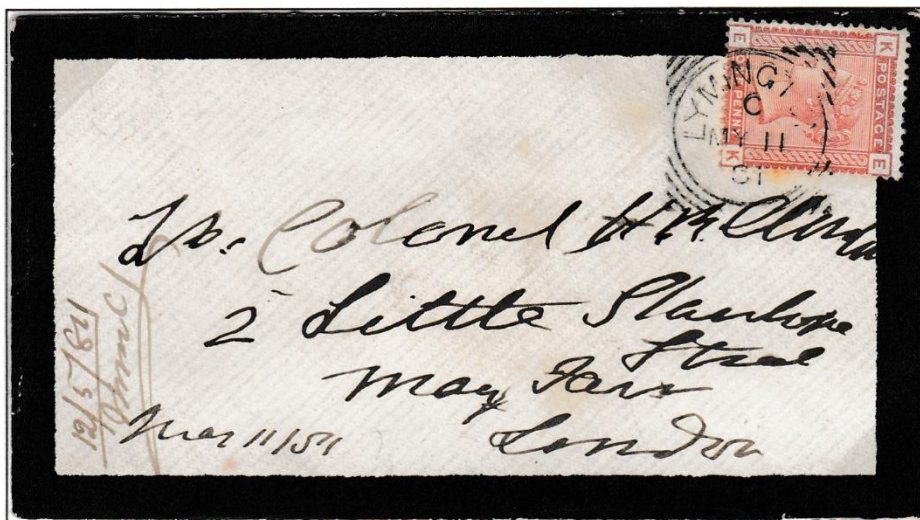 E K
POSTAGE
PENNY
K E
LYMINGT
C
MY 11
81
Lt. Colonel H.
2 Little Stanhope
Street
May Fair
London
12/5/81